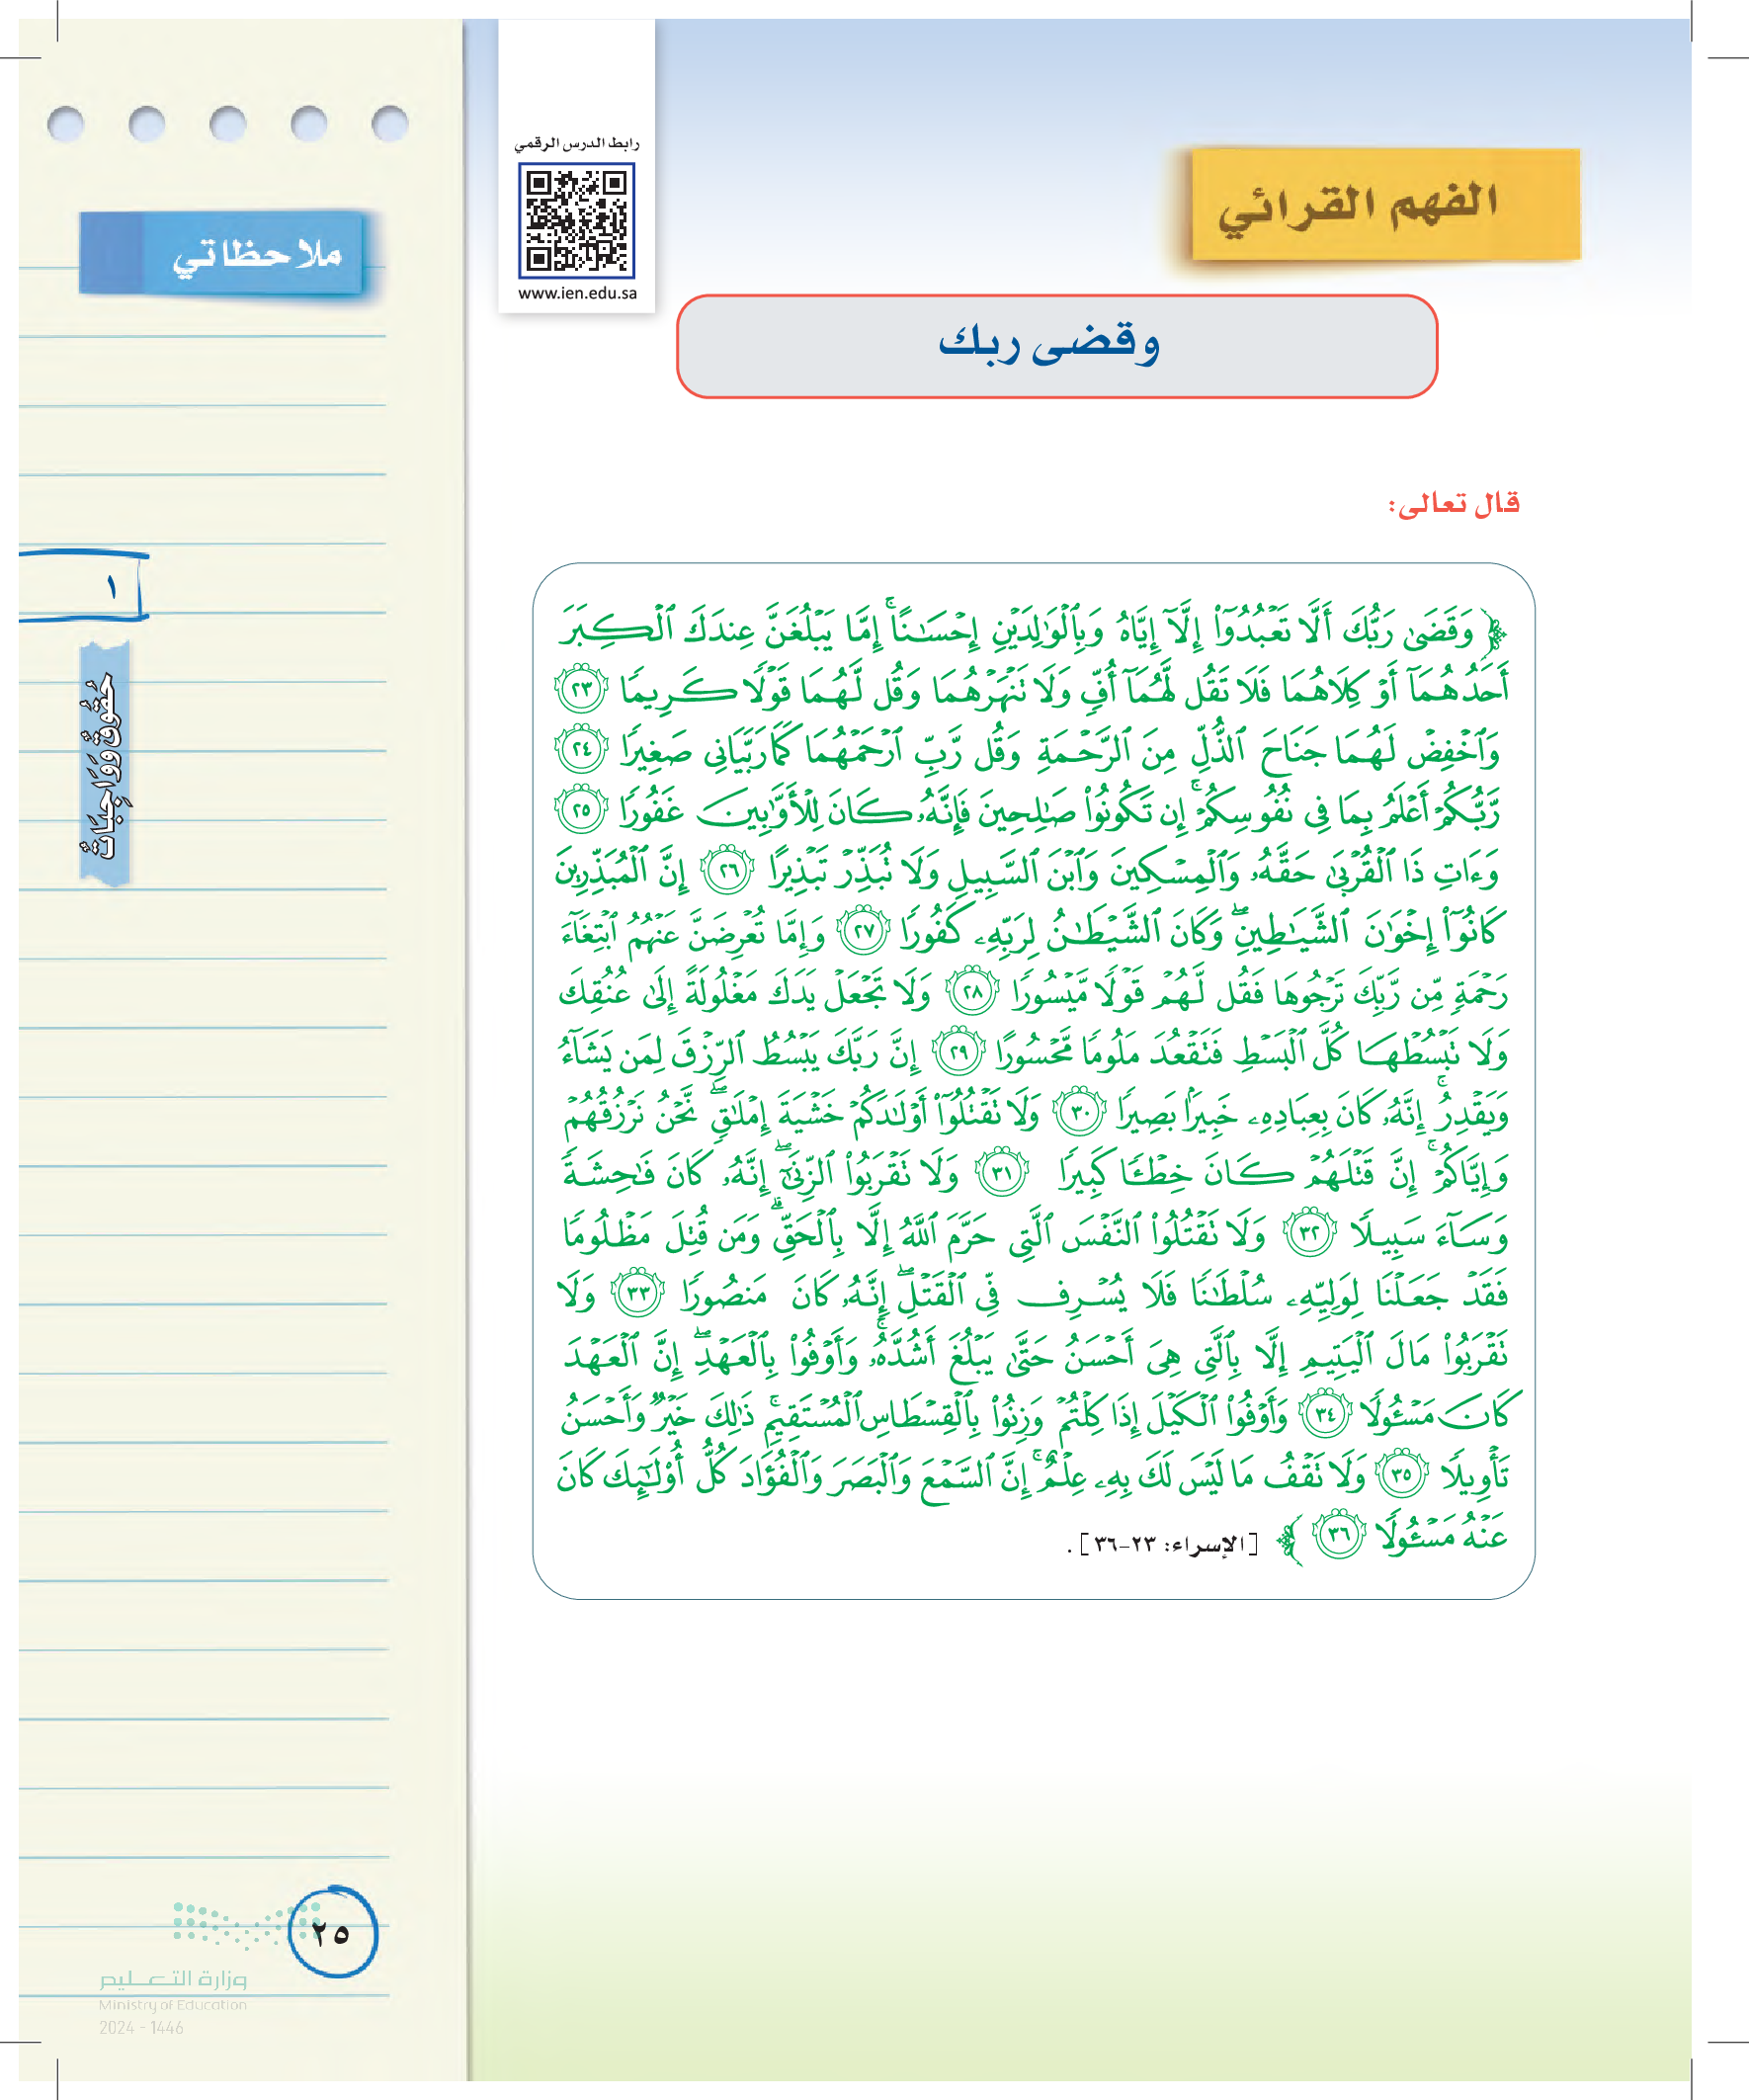 رابط الدرس الرقمي
www.ien.edu.sa
الفهم القرائي
ملاحظاتي
وقضى ربك
قال تعالى:
﴿ وَقَضَىٰ رَبُّكَ أَلَّا تَعۡبُدُوٓاْ إِلَّآ إِيَّاهُ وَبِٱلۡوَٰلِدَيۡنِ إِحۡسَٰنًاۚ إِمَّا يَبۡلُغَنَّ عِندَكَ ٱلۡكِبَرَ
أَحَدُهُمَآ أَوۡ كِلَاهُمَا فَلَا تَقُل لَّهُمَآ أُفّٖ وَلَا تَنۡهَرۡهُمَا وَقُل لَّهُمَا قَوۡلٗا كَرِيمٗا ٢٣
وَٱخۡفِضۡ لَهُمَا جَنَاحَ ٱلذُّلِّ مِنَ ٱلرَّحۡمَةِ وَقُل رَّبِّ ٱرۡحَمۡهُمَا كَمَا رَبَّيَانِي صَغِيرٗا ٢٤
رَّبُّكُمۡ أَعۡلَمُ بِمَا فِي نُفُوسِكُمۡۚ إِن تَكُونُواْ صَٰلِحِينَ فَإِنَّهُۥ كَانَ لِلۡأَوَّٰبِينَ غَفُورٗا ٢٥
وَءَاتِ ذَا ٱلۡقُرۡبَىٰ حَقَّهُۥ وَٱلۡمِسۡكِينَ وَٱبۡنَ ٱلسَّبِيلِ وَلَا تُبَذِّرۡ تَبۡذِيرًا ٢٦ إِنَّ ٱلۡمُبَذِّرِينَ
كَانُوٓاْ إِخۡوَٰنَ ٱلشَّيَٰطِينِۖ وَكَانَ ٱلشَّيۡطَٰنُ لِرَبِّهِۦ كَفُورٗا ٢٧ وَإِمَّا تُعۡرِضَنَّ عَنۡهُمُ ٱبۡتِغَآءَ
رَحۡمَةٖ مِّن رَّبِّكَ تَرۡجُوهَا فَقُل لَّهُمۡ قَوۡلٗا مَّيۡسُورٗا ٢٨ وَلَا تَجۡعَلۡ يَدَكَ مَغۡلُولَةً إِلَىٰ عُنُقِكَ
وَلَا تَبۡسُطۡهَا كُلَّ ٱلۡبَسۡطِ فَتَقۡعُدَ مَلُومٗا مَّحۡسُورًا ٢٩ إِنَّ رَبَّكَ يَبۡسُطُ ٱلرِّزۡقَ لِمَن يَشَآءُ
وَيَقۡدِرُۚ إِنَّهُۥ كَانَ بِعِبَادِهِۦ خَبِيرَۢا بَصِيرٗا ٣٠ وَلَا تَقۡتُلُوٓاْ أَوۡلَٰدَكُمۡ خَشۡيَةَ إِمۡلَٰقٖۖ نَّحۡنُ نَرۡزُقُهُمۡ
وَإِيَّاكُمۡۚ إِنَّ قَتۡلَهُمۡ كَانَ خِطۡـٔٗا كَبِيرٗا ٣١ وَلَا تَقۡرَبُواْ ٱلزِّنَىٰٓۖ إِنَّهُۥ كَانَ فَٰحِشَةٗ
وَسَآءَ سَبِيلٗا ٣٢ وَلَا تَقۡتُلُواْ ٱلنَّفۡسَ ٱلَّتِي حَرَّمَ ٱللَّهُ إِلَّا بِٱلۡحَقِّۗ وَمَن قُتِلَ مَظۡلُومٗا
فَقَدۡ جَعَلۡنَا لِوَلِيِّهِۦ سُلۡطَٰنٗا فَلَا يُسۡرِف فِّي ٱلۡقَتۡلِۖ إِنَّهُۥ كَانَ مَنصُورٗا ٣٣ وَلَا
تَقۡرَبُواْ مَالَ ٱلۡيَتِيمِ إِلَّا بِٱلَّتِي هِيَ أَحۡسَنُ حَتَّىٰ يَبۡلُغَ أَشُدَّهُۥۚ وَأَوۡفُواْ بِٱلۡعَهۡدِۖ إِنَّ ٱلۡعَهۡدَ
كَانَ مَسۡـُٔولٗا ٣٤ وَأَوۡفُواْ ٱلۡكَيۡلَ إِذَا كِلۡتُمۡ وَزِنُواْ بِٱلۡقِسۡطَاسِ ٱلۡمُسۡتَقِيمِۚ ذَٰلِكَ خَيۡرٞ وَأَحۡسَنُ
تَأۡوِيلٗا ٣٥ وَلَا تَقۡفُ مَا لَيۡسَ لَكَ بِهِۦ عِلۡمٌۚ إِنَّ ٱلسَّمۡعَ وَٱلۡبَصَرَ وَٱلۡفُؤَادَ كُلُّ أُوْلَٰٓئِكَ كَانَ
عَنۡهُ مَسۡـُٔولٗا ٣٦ ﴾ [الإسراء: ٢٣-٣٦] .
١
حُقُوقٌ وَوَاجِبَاتٌ
٢٥
وزارة التعليم
Ministry of Education
2024 - 1446